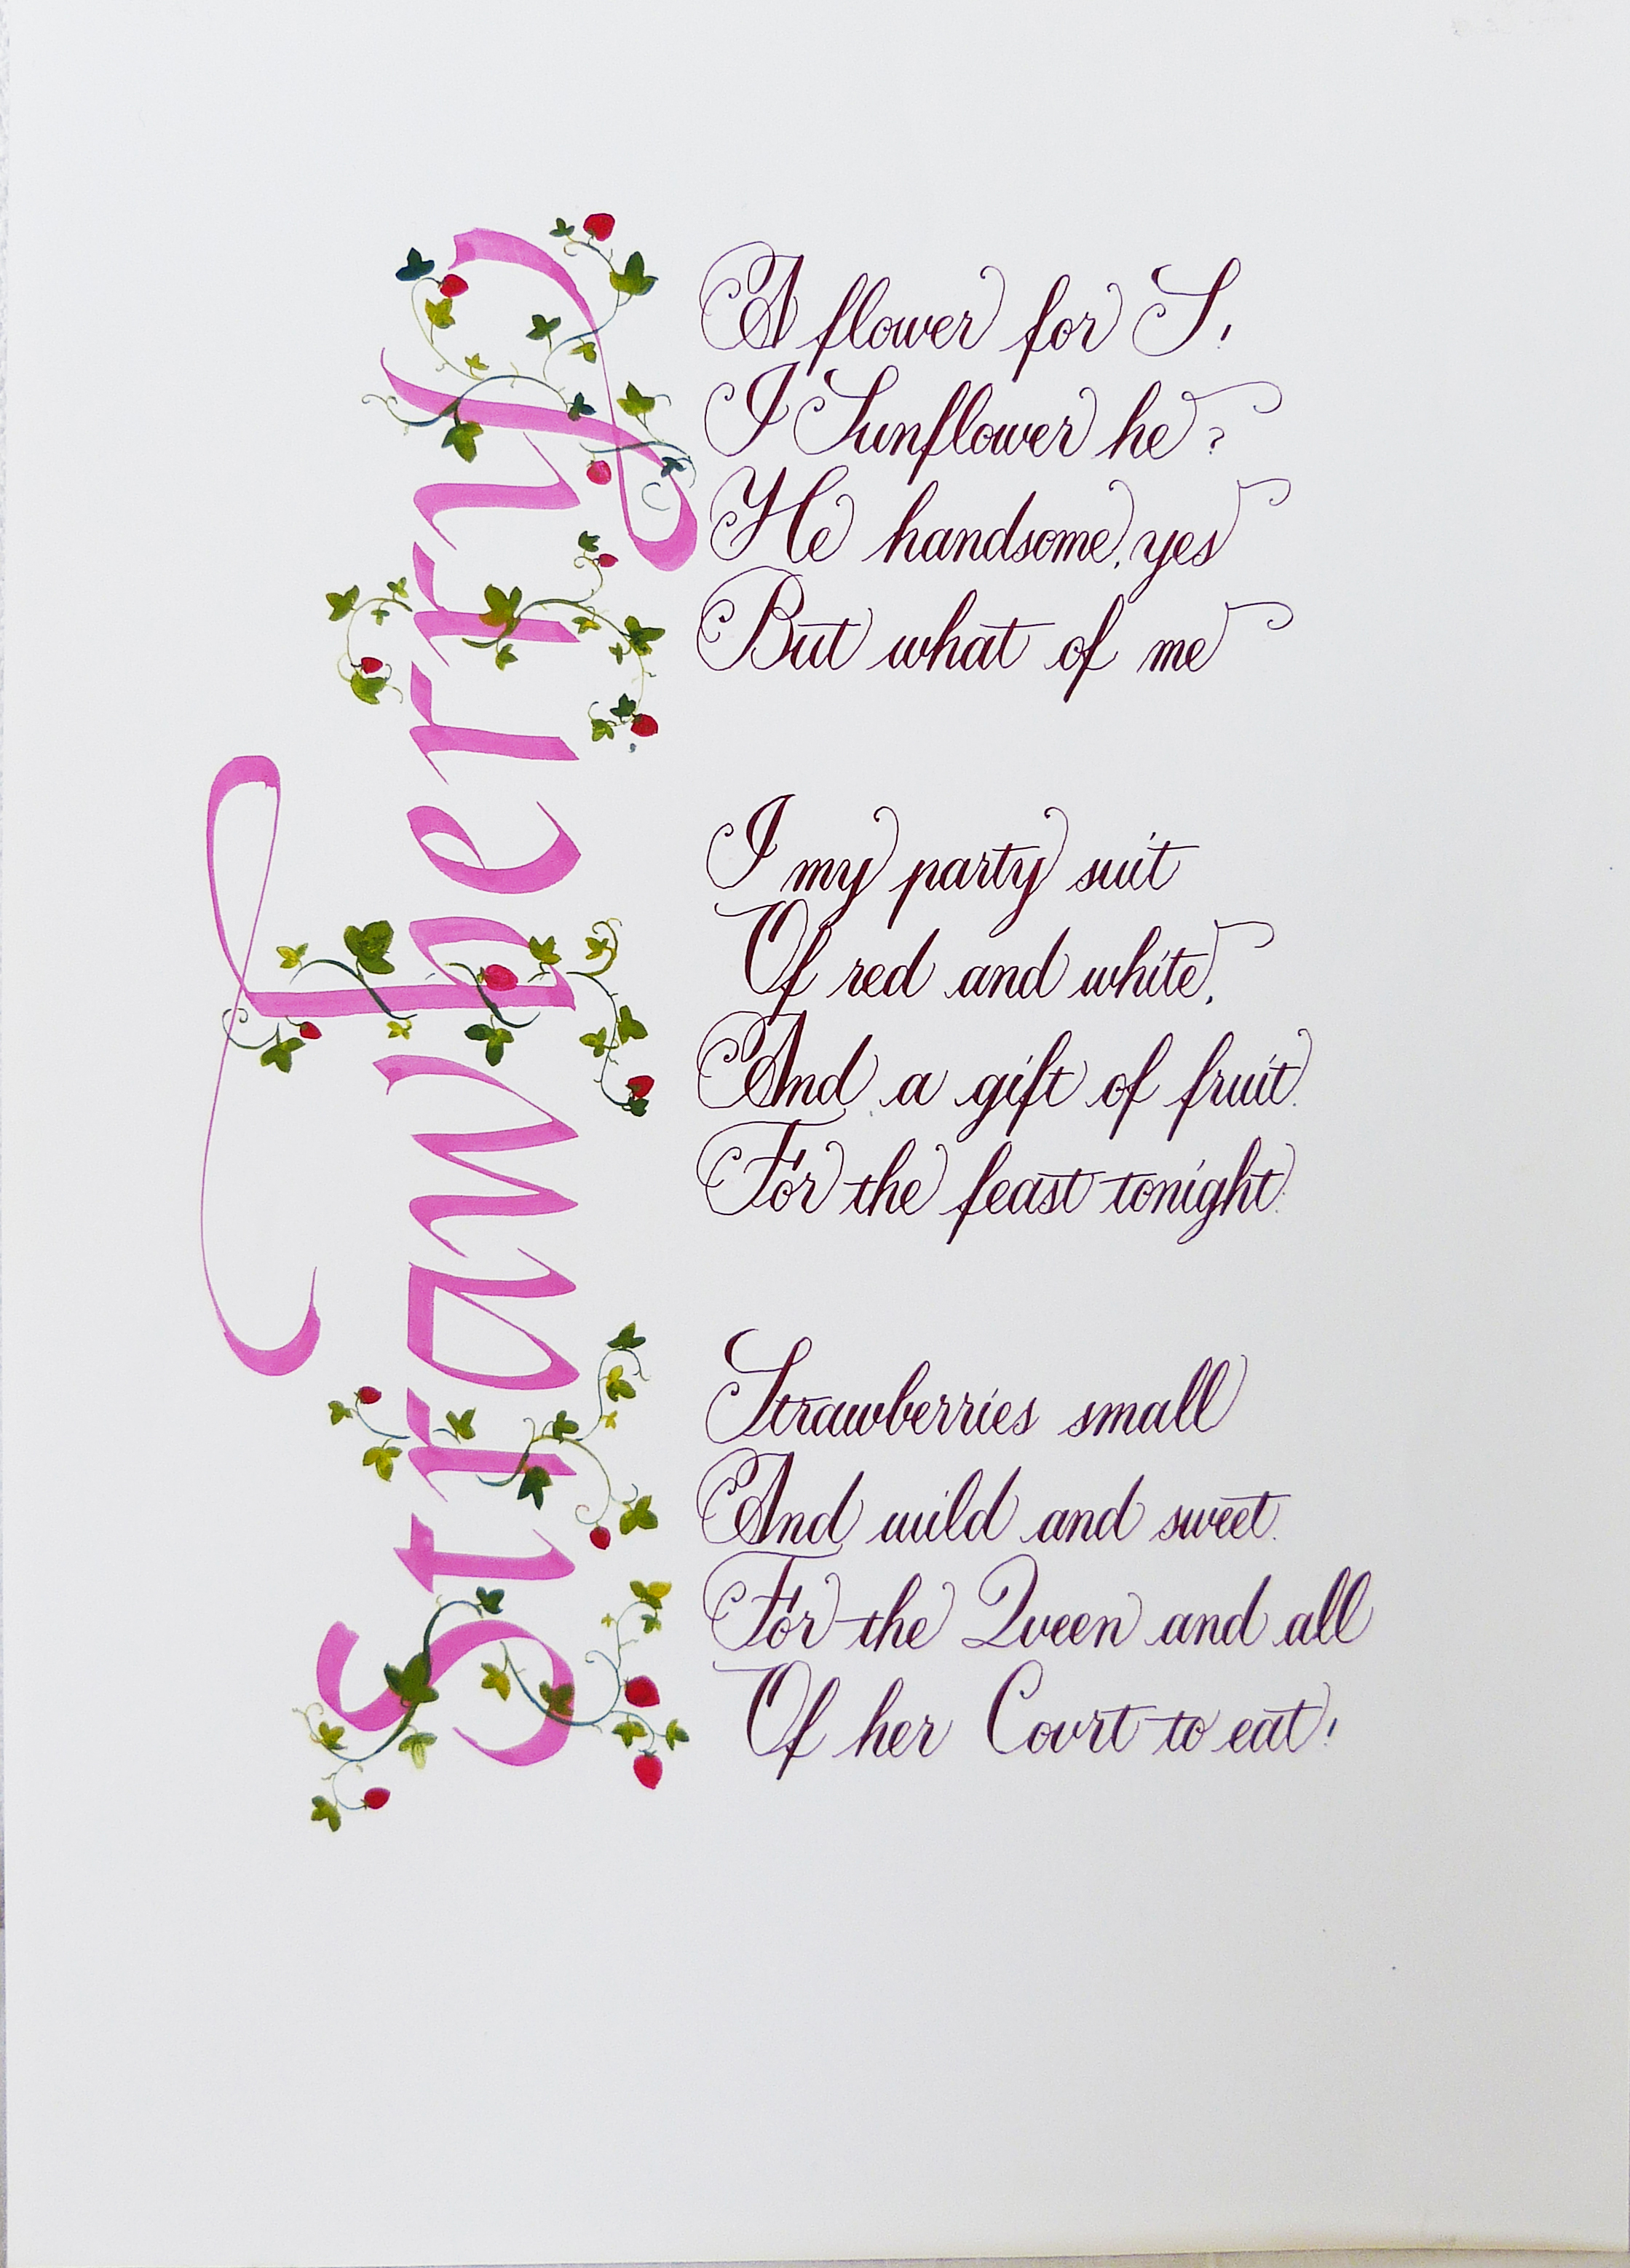 Strawberry
A flower for S!
I Sunflower he?
He handsome, yes
But what of me
I my party suit
Of red and white,
And a gift of fruit.
For the feast tonight.
Strawberries small
And wild and sweet.
For the Queen and all
Of her Court to eat!